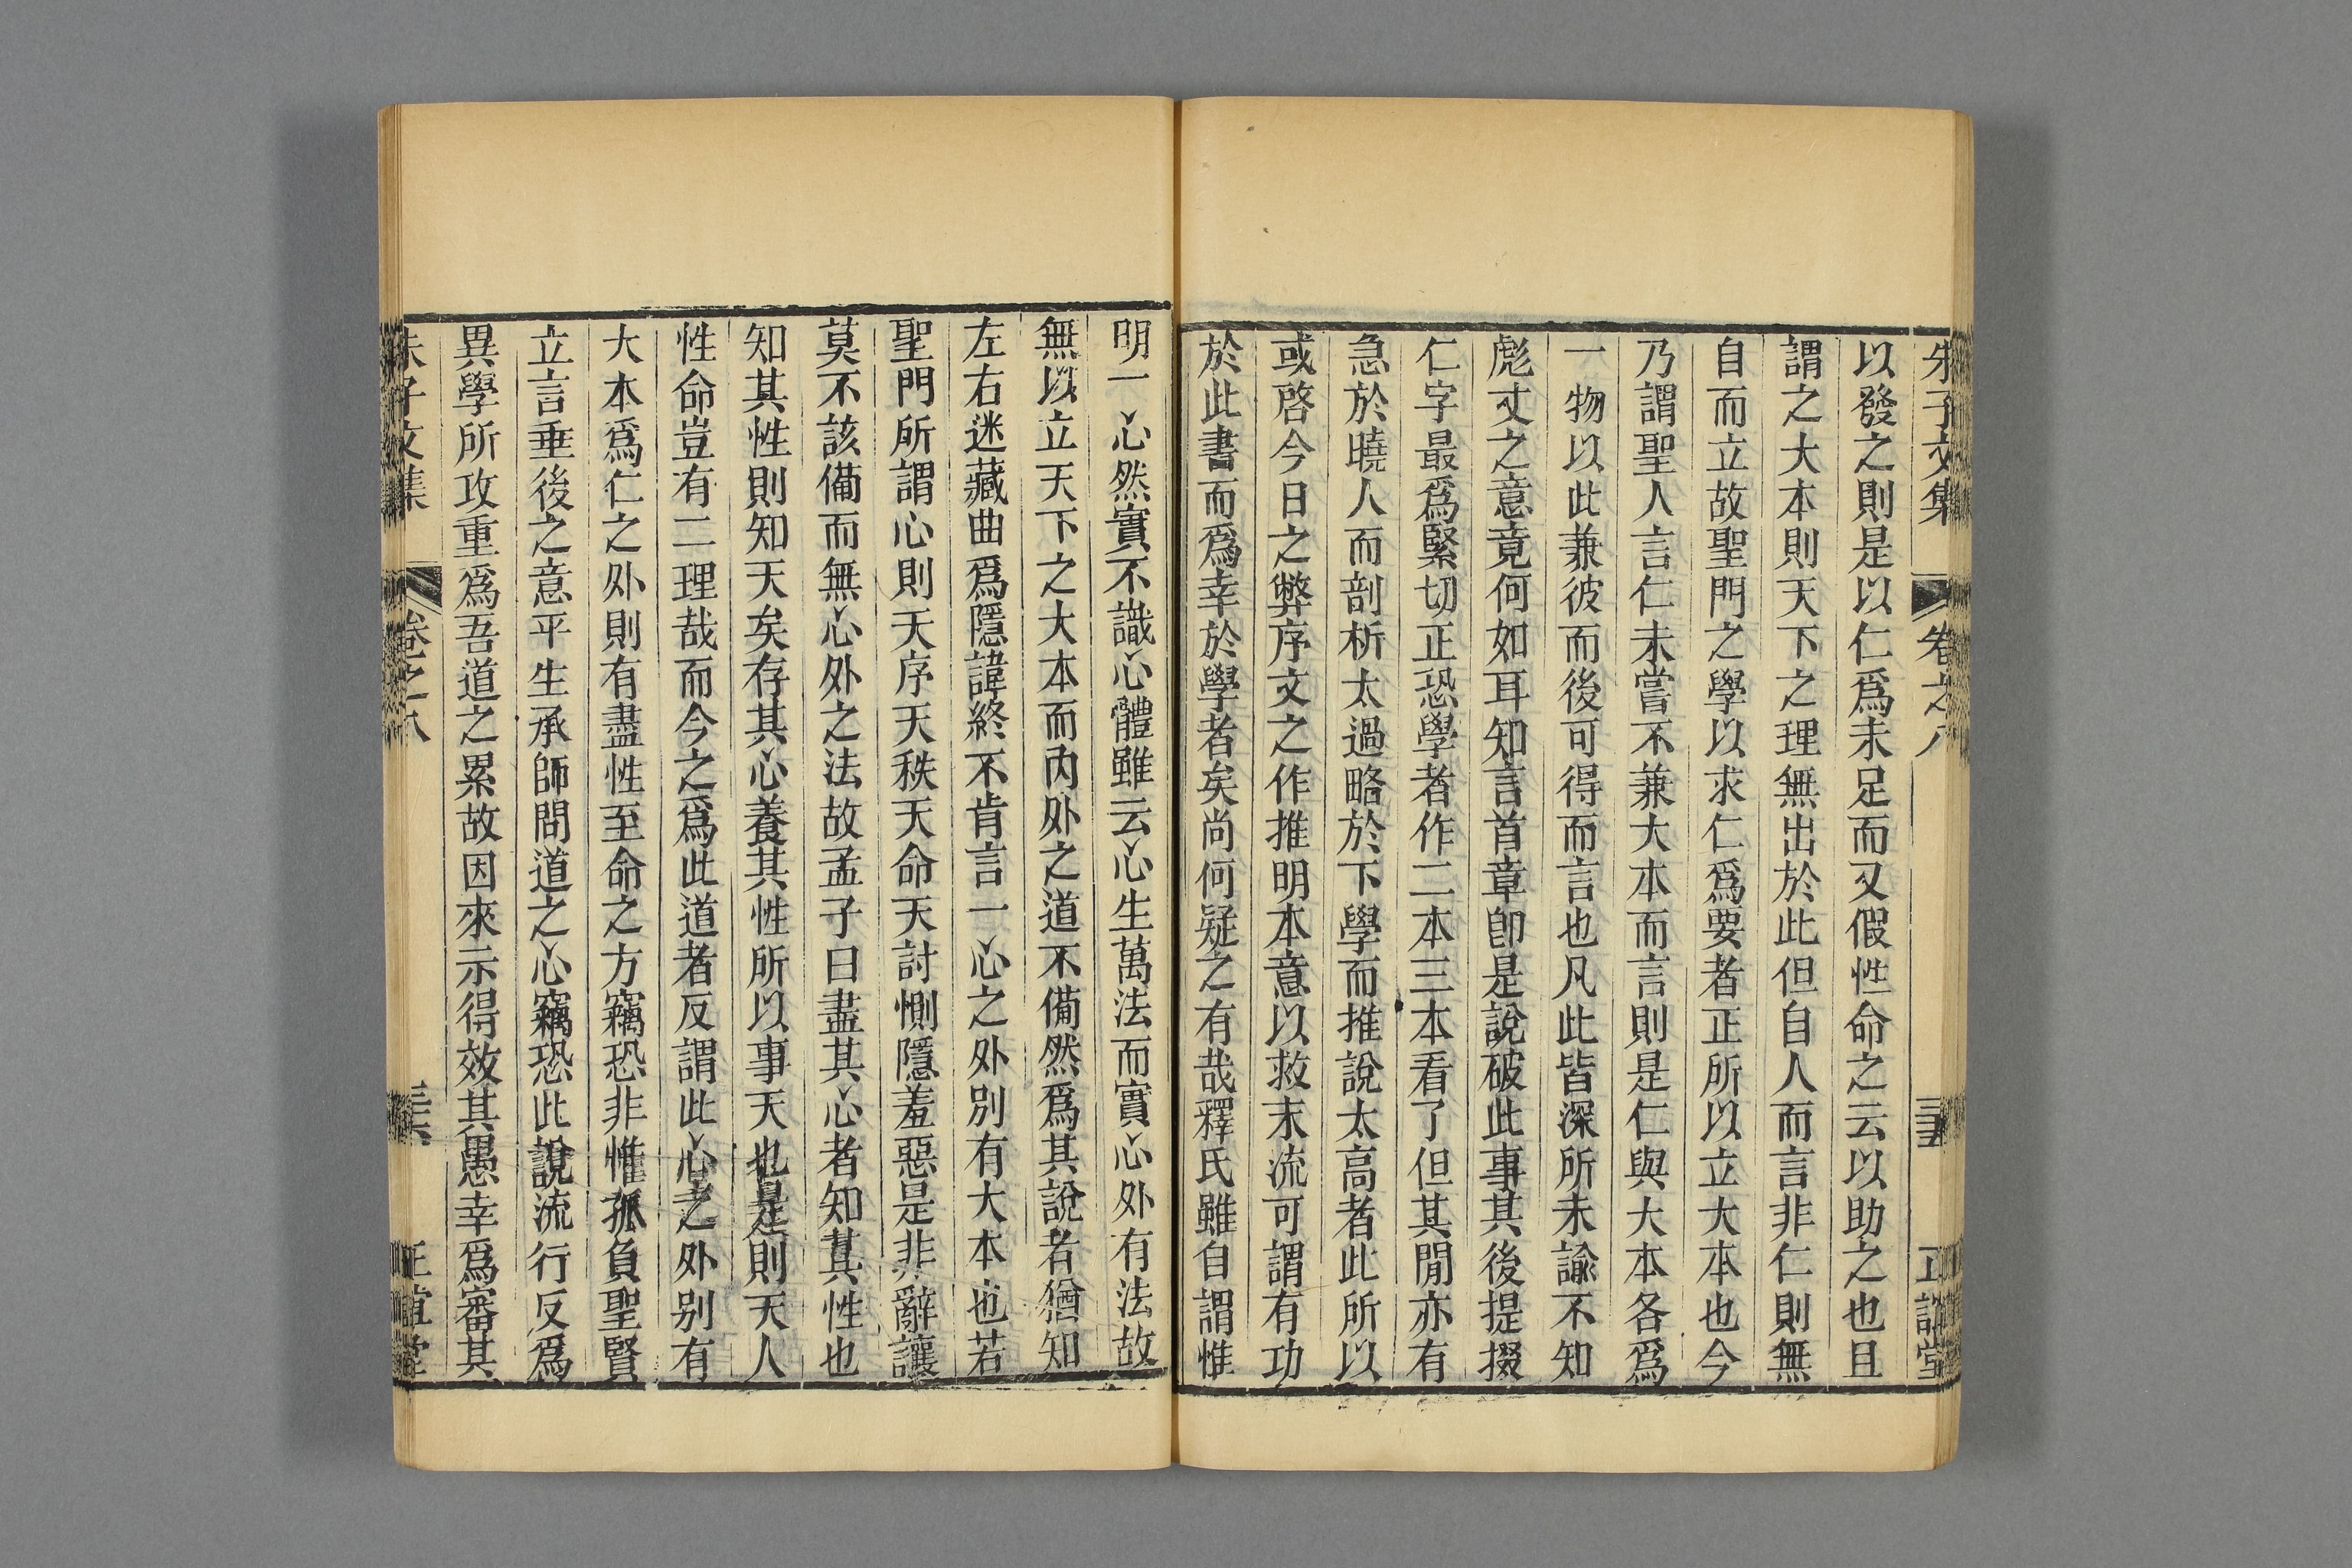 朱子文集 卷之八 三五 正誼堂
以發之則是以仁爲未足而又假性命之云以助之也且
謂之大本則天下之理無出於此但自人而言非仁則無
自而立故聖門之學以求仁爲要者正所以立大本也今
乃謂聖人言仁未嘗不兼大本而言則是仁與大本各爲
一物以此兼彼而後可得而言也凡此皆深所未諭不知
彪丈之意竟何如耳知言首章卽是說破此事其後提掇
仁字最爲緊切正恐學者作二本三本看了但其閒亦有
急於曉人而剖析太過略於下學而推說太高者此所以
或啓今日之弊序文之作推明本意以救末流可謂有功
於此書而爲幸於學者矣尚何疑之有哉釋氏雖自謂惟
明一心然實不識心體雖云心生萬法而實心外有法故
無以立天下之大本而內外之道不備然爲其說者猶知
左右迷藏曲爲隱諱終不肯言一心之外別有大本也若
聖門所謂心則天序天秩天命天討惻隱羞惡是非辭讓
莫不該備而無心外之法故孟子曰盡其心者知其性也
知其性則知天矣存其心養其性所以事天也是則天人
性命豈有二理哉而今之爲此道者反謂此心之外別有
大本爲仁之外則有盡性至命之方竊恐非惟孤負聖賢
立言垂後之意平生承師問道之心竊恐此說流行反爲
異學所攻重爲吾道之累故因來示得效其愚幸爲審其
朱子文集 卷之八 三六 正誼堂